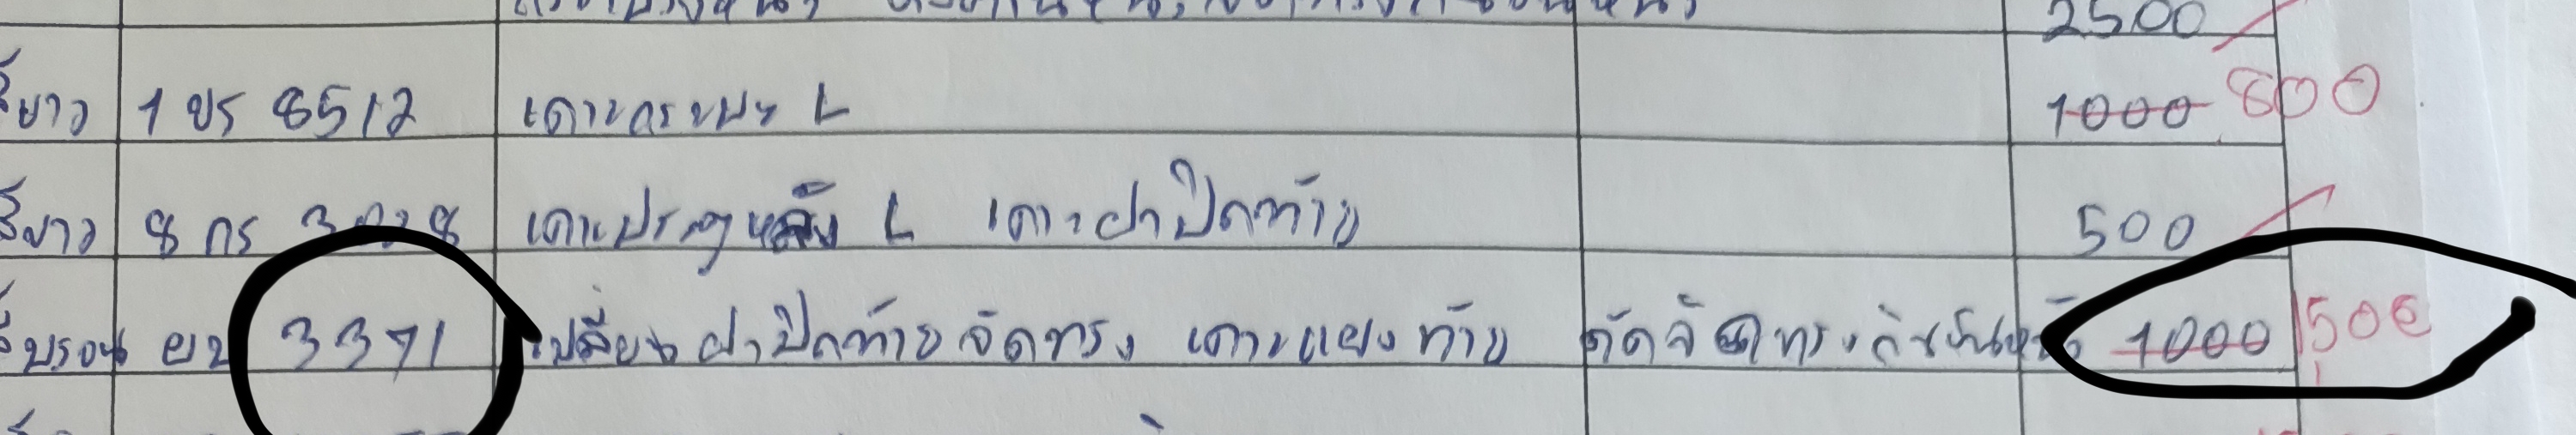 2500
สีขาว 1 ปร 8512 เคาะกระบะ L 1000 800
สีขาว 8 กร 3028 เคาะประตูหลัง L เคาะฝาปิดท้าย 500
สีบรอน ยบ 3371 เปลี่ยนฝาปิดท้ายจัดทรง เคาะแผงท้าย ดัดจัดทรงกันชนหลัง 1000 1500